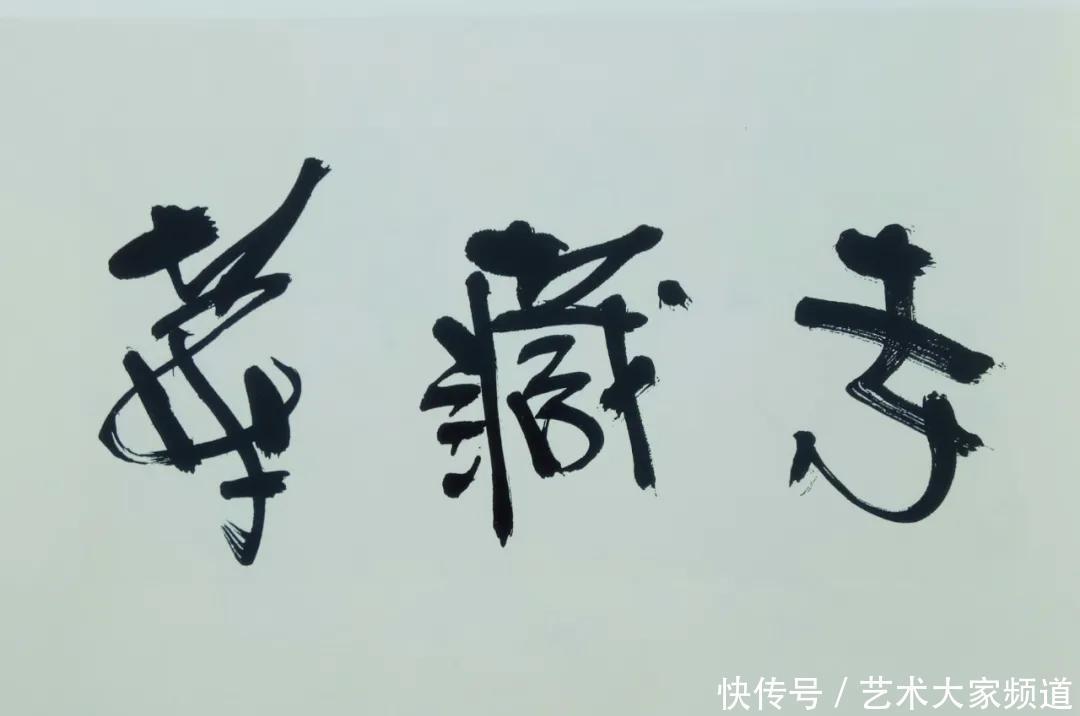 華藏寺
快传号 / 艺术大家频道